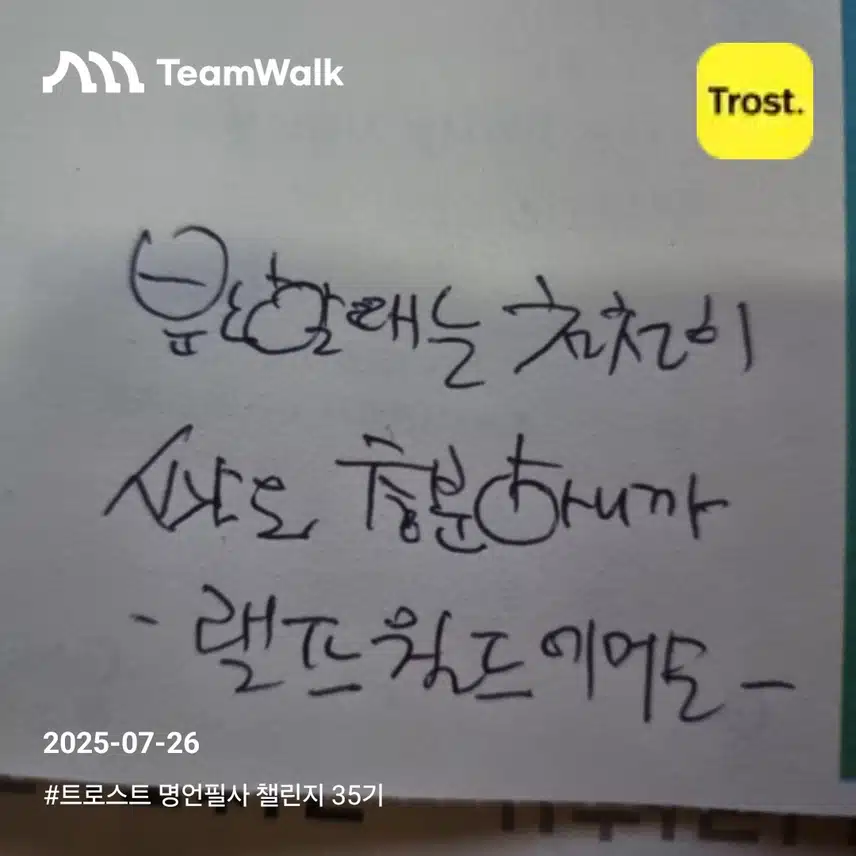 TeamWalk
Trost.
할 때는 천천히
시작도 충분하니까
- 랠프 월도 에머슨 -
2025-07-26
#트로스트 명언필사 챌린지 35기